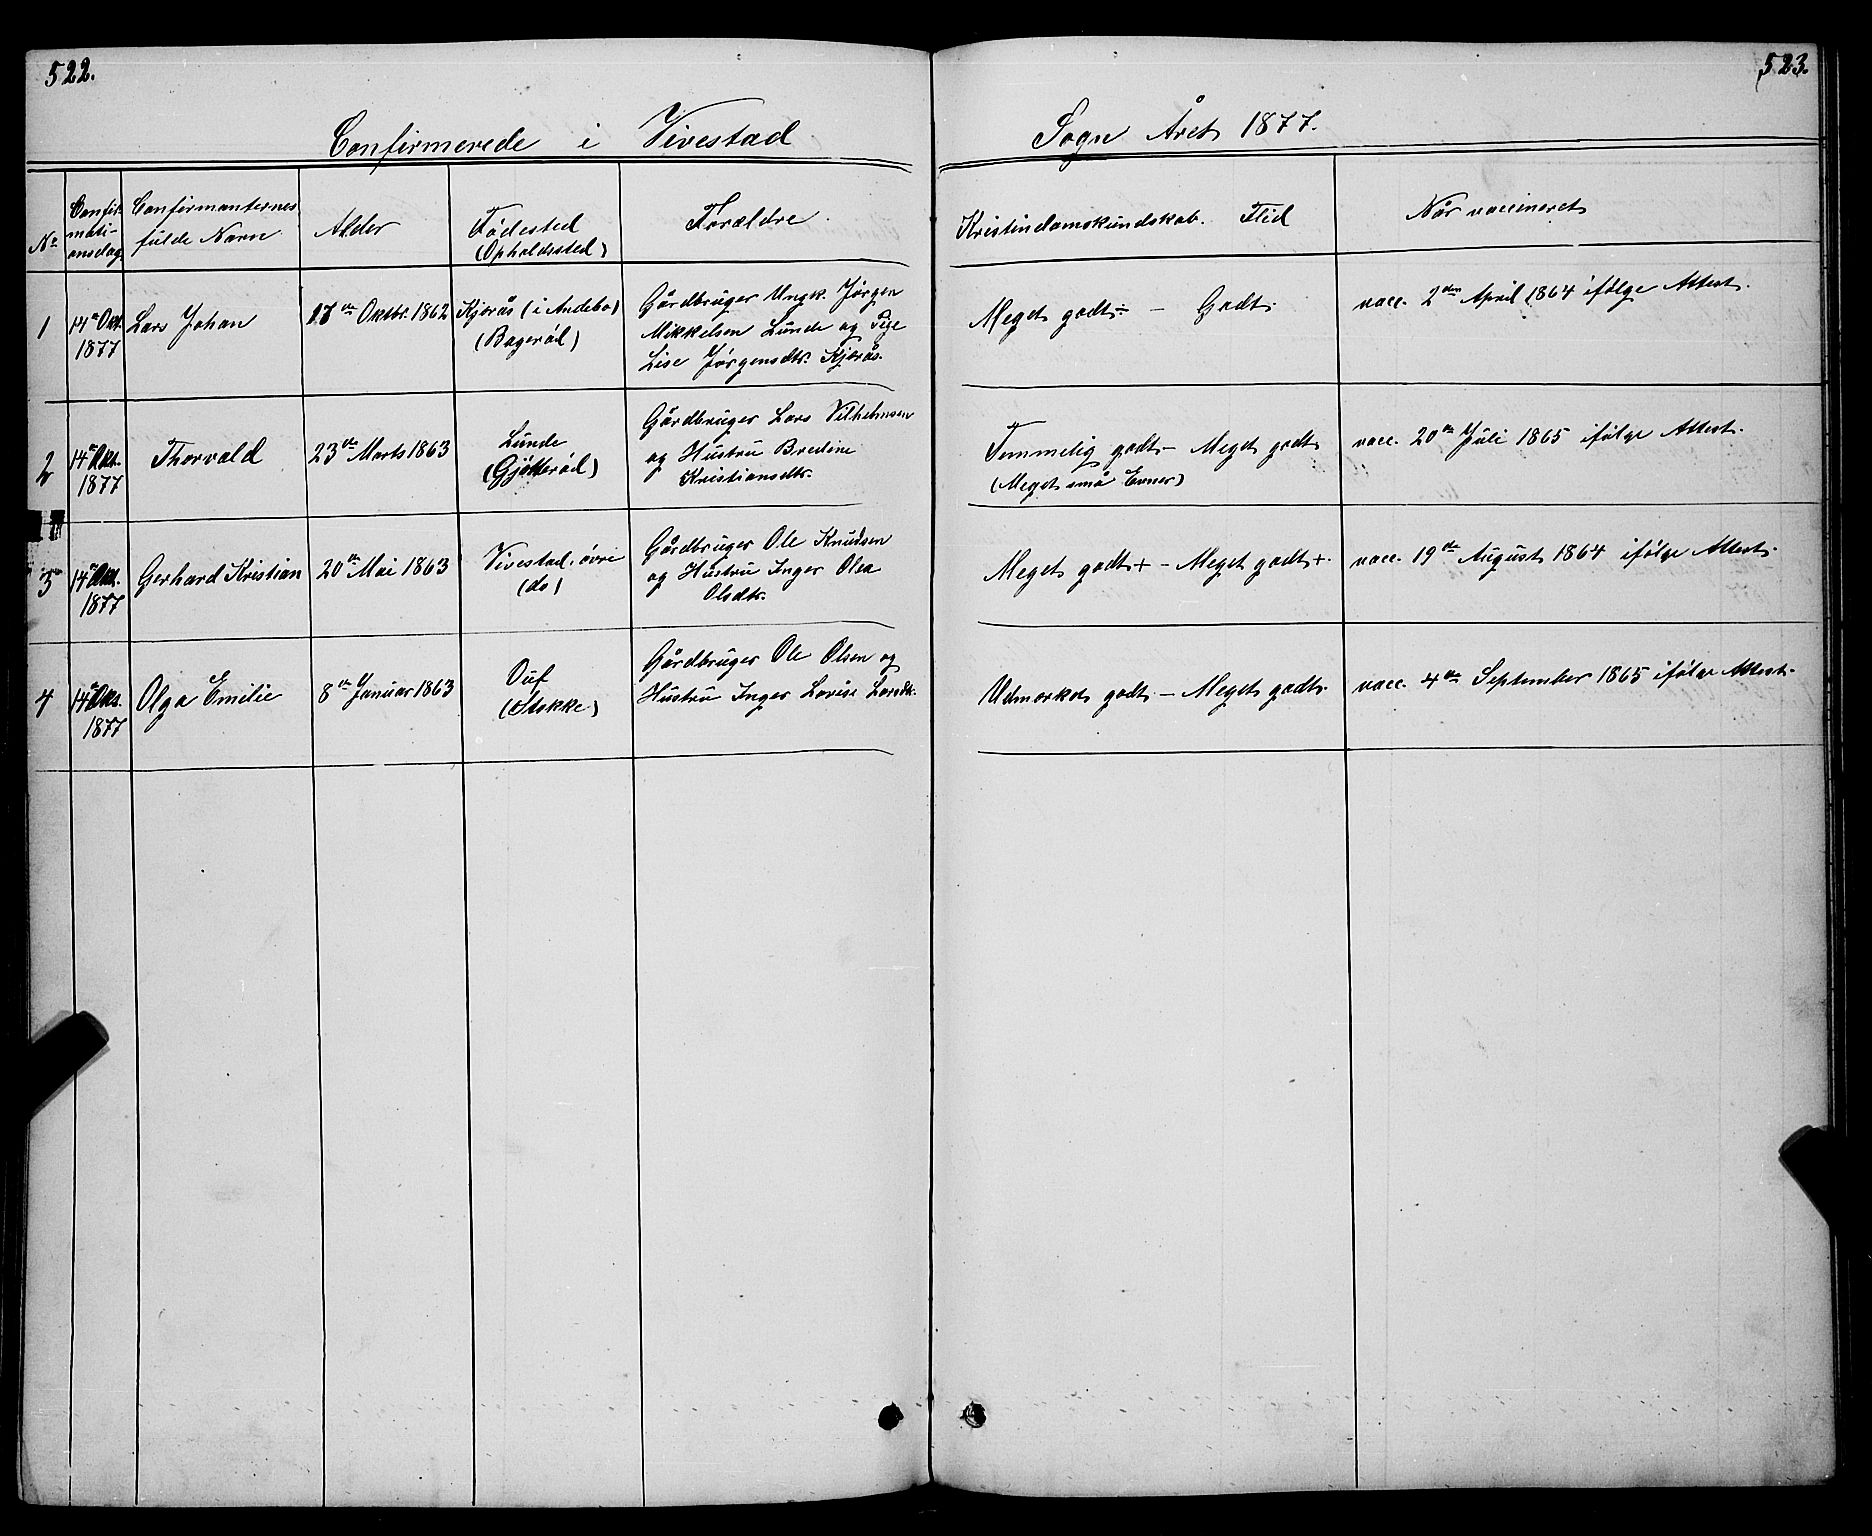 522.
523.
Confirmerede i Vivestad Sogn Året 1877.
No
Confir-
mati-
onsdag
Confirmanternes
fulde Navn
Alder
Fødested
(Opholdssted)
Forældre
Kristindomskundskab. Flid
Når vaccineret
1
14de Okt.
1877
Lars Johan
17de Oktbr. 1862
Kjærås (i Andebo)
(Bagerød)
Gårdbruger Ungk. Jørgen
Mikkelsen Lunde og Pige
Lise Jørgensdtr. Kjærås.
Meget godt ÷ - Godt.
vacc. 2den April 1864 ifølge Attest.
2
14de Okt.
1877
Thorvald
23de Marts 1863
Lunde
(Gjötterød)
Gårdbruger Lars Vilhelmsen
og Hustru Bredine
Kristiansdtr.
Temmelig godt - Meget godt
(Meget små Evner)
vacc. 20de Juli 1865 ifølge Attest.
3
14de Okt.
1877
Gerhard Kristian
20de Mai 1863
Vivestad, övre
(do)
Gårdbruger Ole Knudsen
og Hustru Inger Olea
Olsdtr.
Meget godt + - Meget godt +.
vacc. 19de August 1864 ifølge Attest.
4
14de Okt.
1877
Olga Emilie
8de Januar 1863
Ouf
(Stokke)
Gårdbruger Ole Olsen og
Hustru Inger Lovise Larsdtr.
Udmærket godt. - Meget godt.
vacc. 4de September 1865 ifølge Attest.